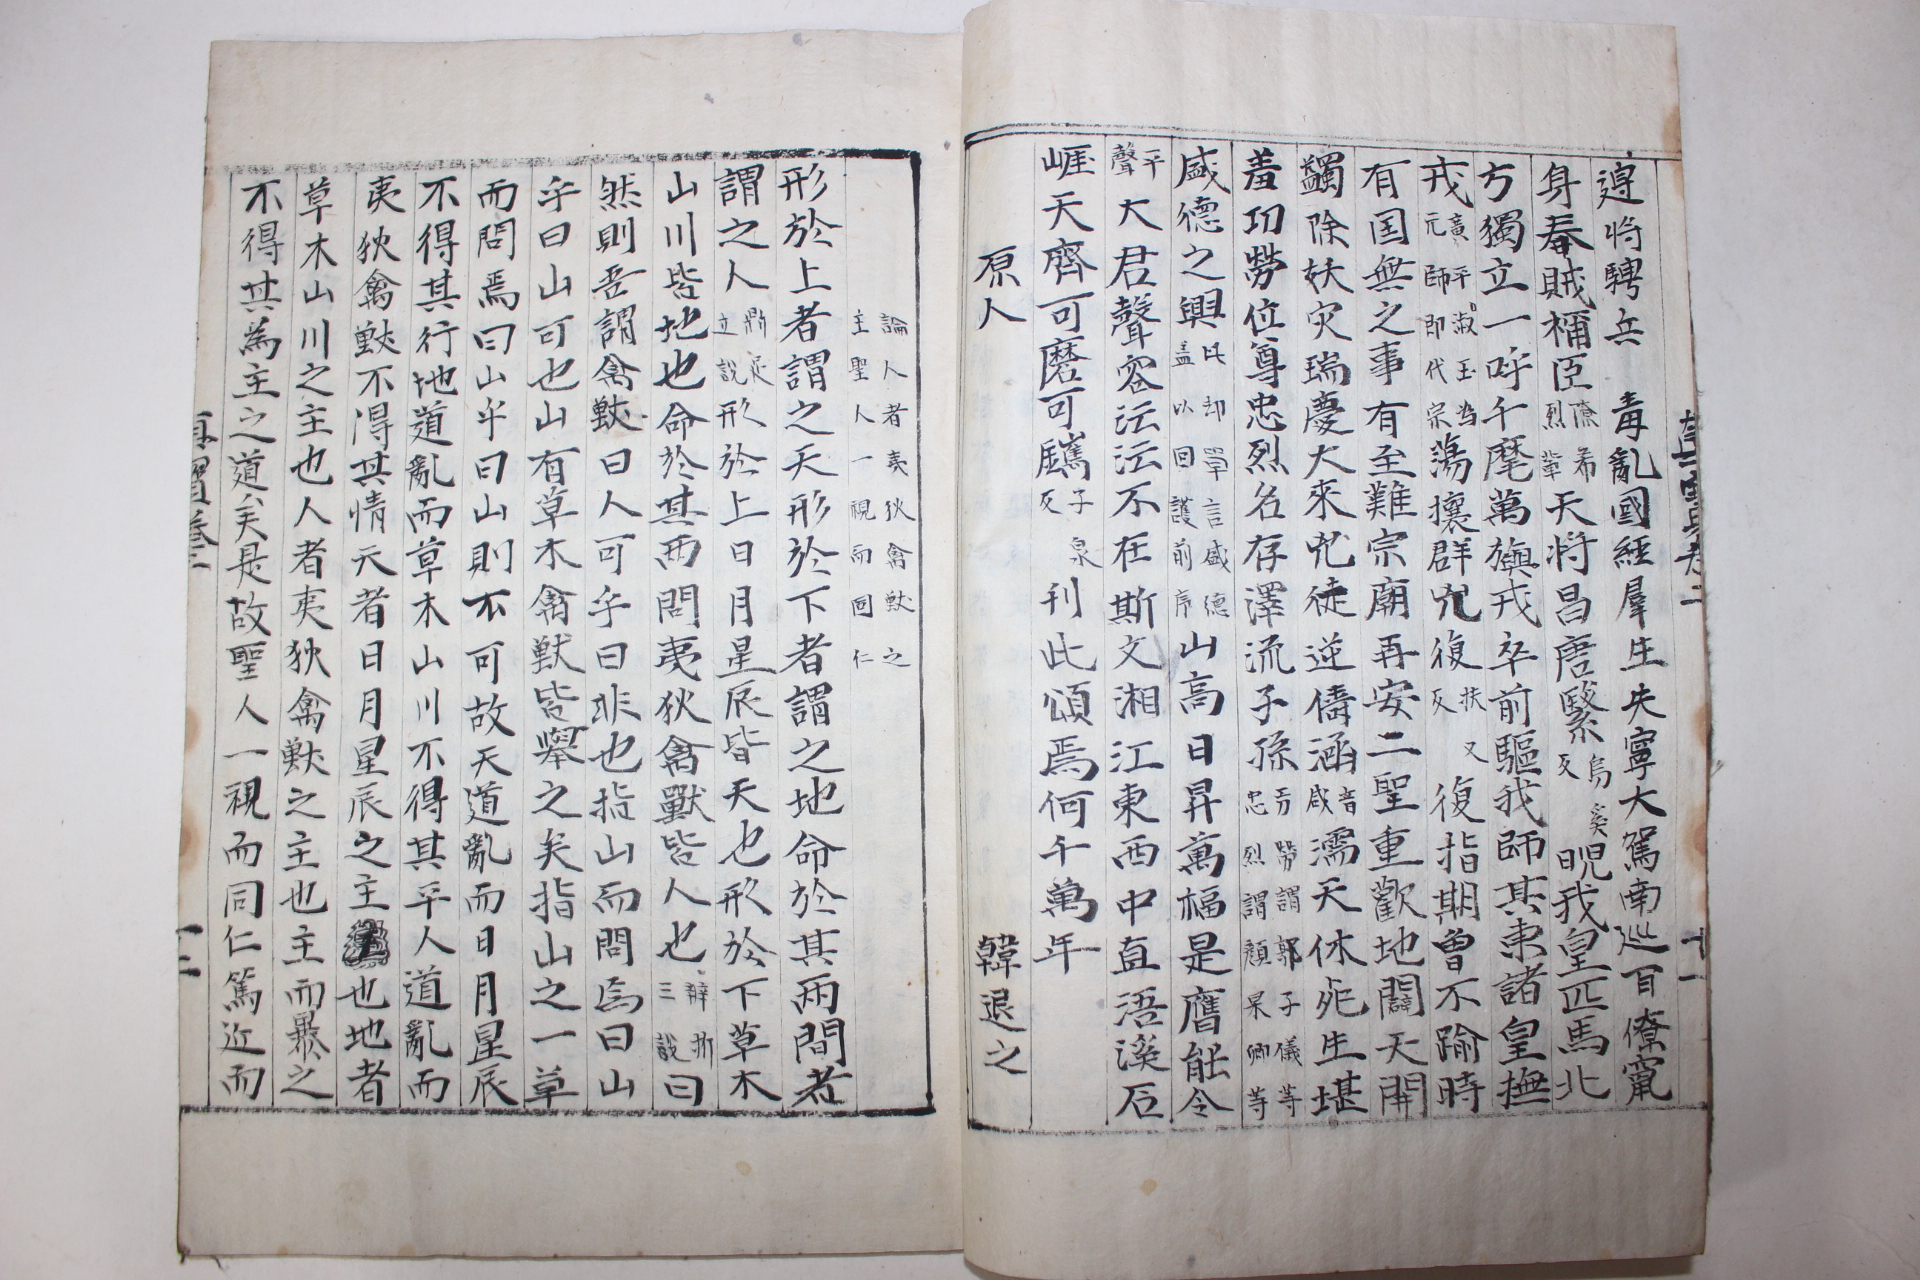 邊將騁兵 毒亂國經羣生失寧大駕南巡百僚竄
身奉賊稱臣 天將昌唐繄 烏奚反 睨我皇匹馬北
方獨立一呼千麾萬旟戎卒前驅我師其東諸皇撫
戎 蕩攘群兇復 扶又反 復指期曾不踰時
有国無之事有至難宗廟再安二聖重歡地闢天開
蠲除妖灾瑞慶大來兇徒逆儔涵 音咸 濡天休死生堪
羞功勞位尊忠烈名存澤流子孫
盛德之興 山高日昇萬福是膺能令
聲平 大君聲容沄沄不在斯文湘江東西中直浯溪石
崕天齊可磨可鐫 子泉反 刊此頌焉何千萬年
原人 韓退之
真寳卷二 十一
論人者夷狄禽獸之
主聖人一視而同仁
形於上者謂之天形於下者謂之地命於其兩間者
謂之人 形於上日月星辰皆天也形於下草木
山川皆地也命於其兩間夷狄禽獸皆人也 曰
然則吾謂禽獸曰人可乎曰非也指山而問焉曰山
乎曰山可也山有草木禽獸皆擧之矣指山之一草
而問焉曰山乎曰山則不可故天道亂而日月星辰
不得其行地道亂而草木山川不得其平人道亂而
夷狄禽獸不得其情天者日月星辰之主也地者
草木山川之主也人者夷狄禽獸之主也主而暴之
不得其為主之道矣是故聖人一視而同仁篤近而
真寳卷二 十二